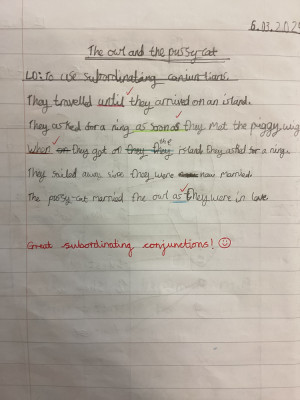 6.03.202
The owl and the pussy-cat
LO: To use subordinating conjunctions.
They travelled until they arrived on an island.
They asked for a ring as soon as they met the piggy wig
When they got on the island they asked for a ring.
They sailed away since they were now married.
The pussy-cat married the owl as they were in love.
Great subordinating conjunctions! ☺